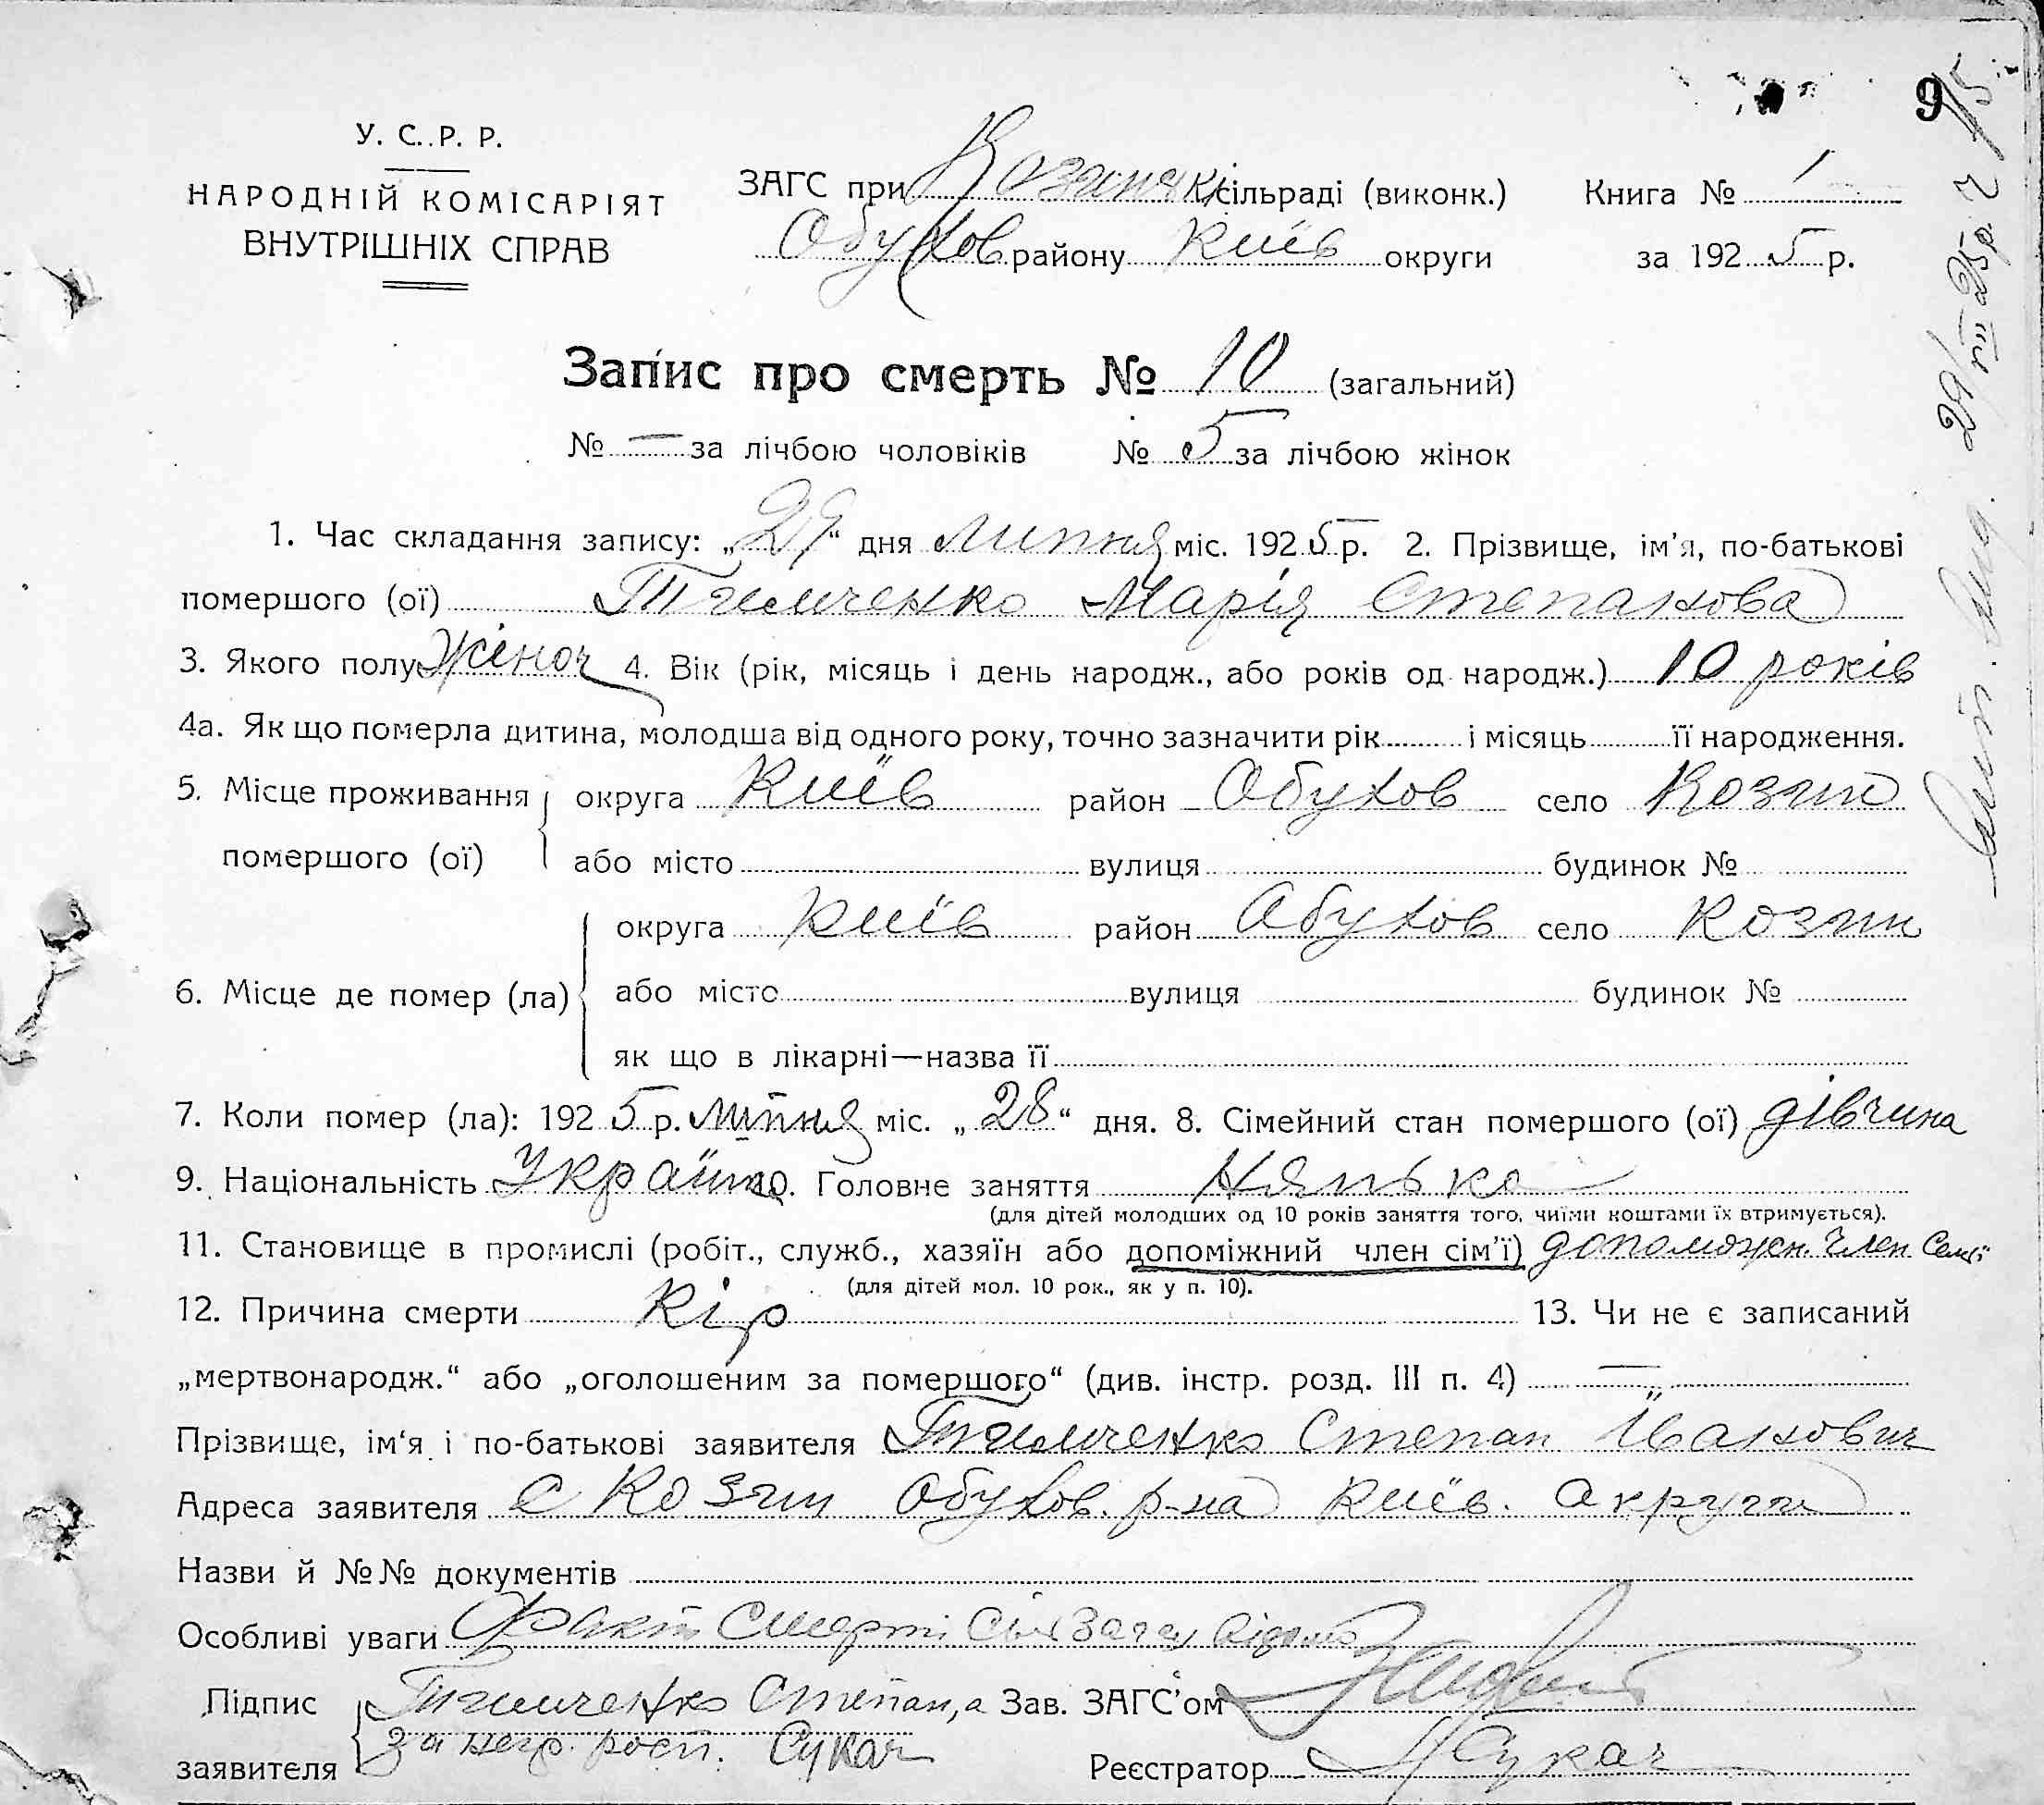 9
У. С. Р. Р.
НАРОДНІЙ КОМІСАРІЯТ
ВНУТРІШНІХ СПРАВ
ЗАГС при Козинскі сільраді (виконк.) Книга № 1
Обухов району Київ округи за 1925 р.
Запис про смерть № 10 (загальний)
№ — за лічбою чоловіків № 5 за лічбою жінок
1. Час складання запису: „29“ дня липня міс. 1925 р. 2. Прізвище, ім'я, по-батькові
помершого (ої) Тимченко Марія Степанова
3. Якого полу Жіноч 4. Вік (рік, місяць і день народж., або років од народж.) 10 років
4а. Як що померла дитина, молодша від одного року, точно зазначити рік і місяць її народження.
5. Місце проживання округа Київ район Обухов село Козин
помершого (ої) або місто вулиця будинок №
округа Київ район Обухов село Козин
6. Місце де помер (ла) або місто вулиця будинок №
як що в лікарні—назва її
7. Коли помер (ла): 1925 р. липня міс. „28“ дня. 8. Сімейний стан помершого (ої) дівчина
9. Національність Україн 10. Головне заняття Нянька
(для дітей молодших од 10 років заняття того, чиїми коштами їх втримується).
11. Становище в промислі (робіт., служб., хазяїн або допоміжний член сім'ї) допоможн. член семї
(для дітей мол. 10 рок., як у п. 10).
12. Причина смерти Кір 13. Чи не є записаний
„мертвонародж.“ або „оголошеним за помершого“ (див. інстр. розд. III п. 4) —„
Прізвище, ім'я і по-батькові заявителя Тимченко Степан Іванович
Адреса заявителя с Козин Обухов. р-на Київ. округи
Назви й №№ документів
Особливі уваги Факт смерті сіл Загсу відомо
Підпис Тимченко Степан, а Зав. ЗАГС'ом
заявителя за негр. росп. Сукач Реєстратор Сукач
29/VII 25 р. 2/15